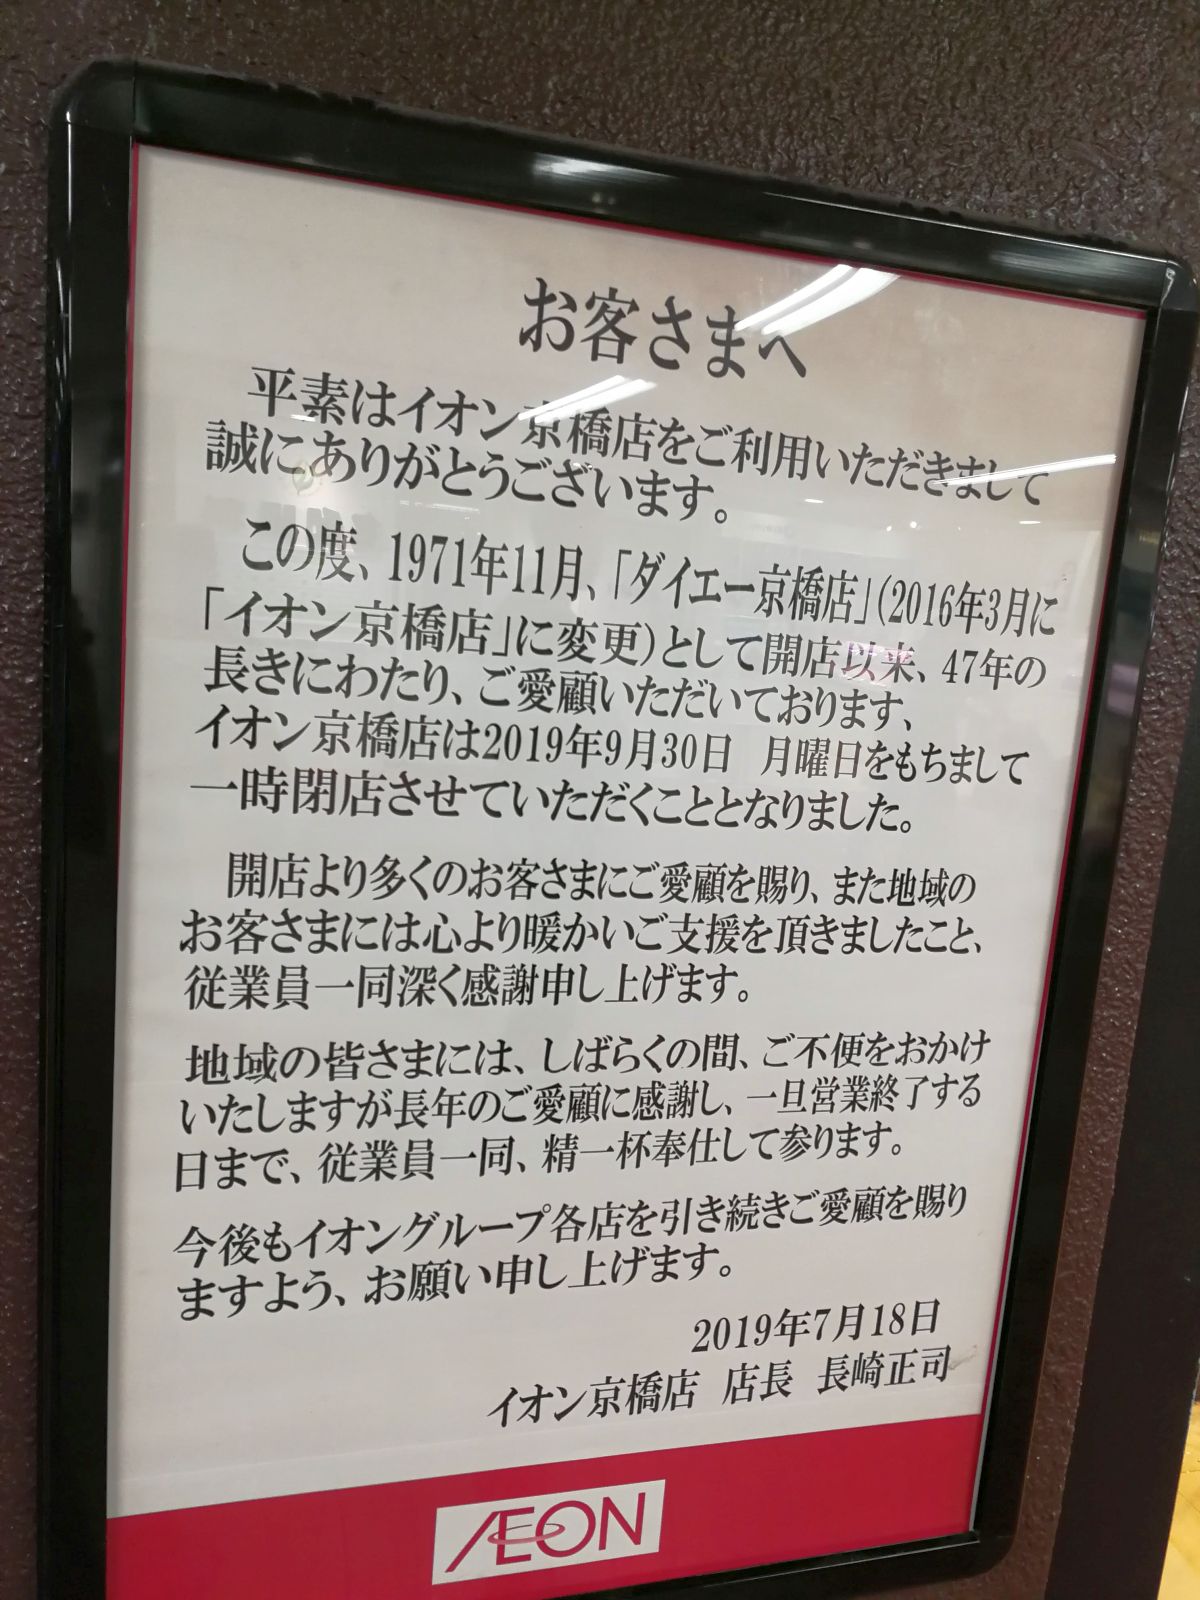 お客さまへ
平素はイオン京橋店をご利用いただきまして
誠にありがとうございます。
この度、1971年11月、「ダイエー京橋店」(2016年3月に
「イオン京橋店」に変更)として開店以来、47年の
長きにわたり、ご愛顧いただいております、
イオン京橋店は2019年9月30日 月曜日をもちまして
一時閉店させていただくこととなりました。
開店より多くのお客さまにご愛顧を賜り、また地域の
お客さまには心より暖かいご支援を頂きましたこと、
従業員一同深く感謝申し上げます。
地域の皆さまには、しばらくの間、ご不便をおかけ
いたしますが長年のご愛顧に感謝し、一旦営業終了する
日まで、従業員一同、精一杯奉仕して参ります。
今後もイオングループ各店を引き続きご愛顧を賜り
ますよう、お願い申し上げます。
2019年7月18日
イオン京橋店 店長 長崎正司
ÆON